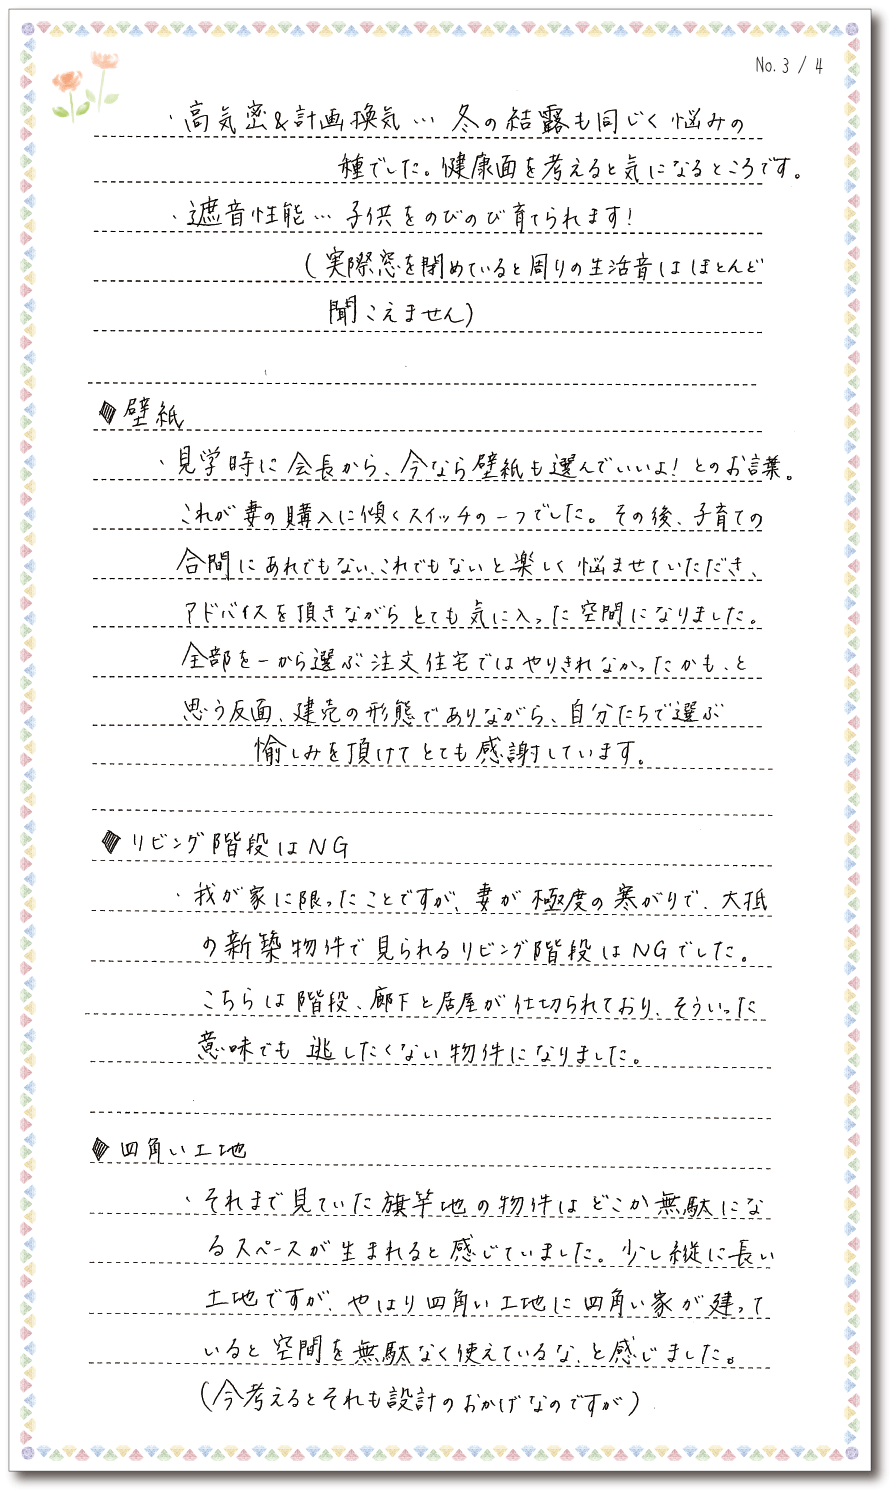 No. 3 / 4
・高気密&計画換気… 冬の結露も同じく悩みの
種でした。健康面を考えると気になるところです。
・遮音性能… 子供をのびのび育てられます!
(実際窓を閉めていると周りの生活音はほとんど
聞こえません)
◆壁紙
・見学時に会長から、今なら壁紙も選んでいいよ!とのお言葉。
これが妻の購入に傾くスイッチの一つでした。その後、子育ての
合間にあれでもない、これでもないと楽しく悩ませていただき、
アドバイスを頂きながらとても気に入った空間になりました。
全部を一から選ぶ注文住宅ではやりきれなかったかも、と
思う反面、建売の形態でありながら、自分たちで選ぶ
愉しみを頂けてとても感謝しています。
◆リビング階段はNG
・我が家に限ったことですが、妻が極度の寒がりで、大抵
の新築物件で見られるリビング階段はNGでした。
こちらは階段、廊下と居屋が仕切られており、そういった
意味でも逃したくない物件になりました。
◆四角い土地
・それまで見ていた旗竿地の物件はどこか無駄にな
るスペースが生まれると感じていました。少し縦に長い
土地ですが、やはり四角い土地に四角い家が建って
いると空間を無駄なく使えているな、と感じました。
(今考えるとそれも設計のおかげなのですが)